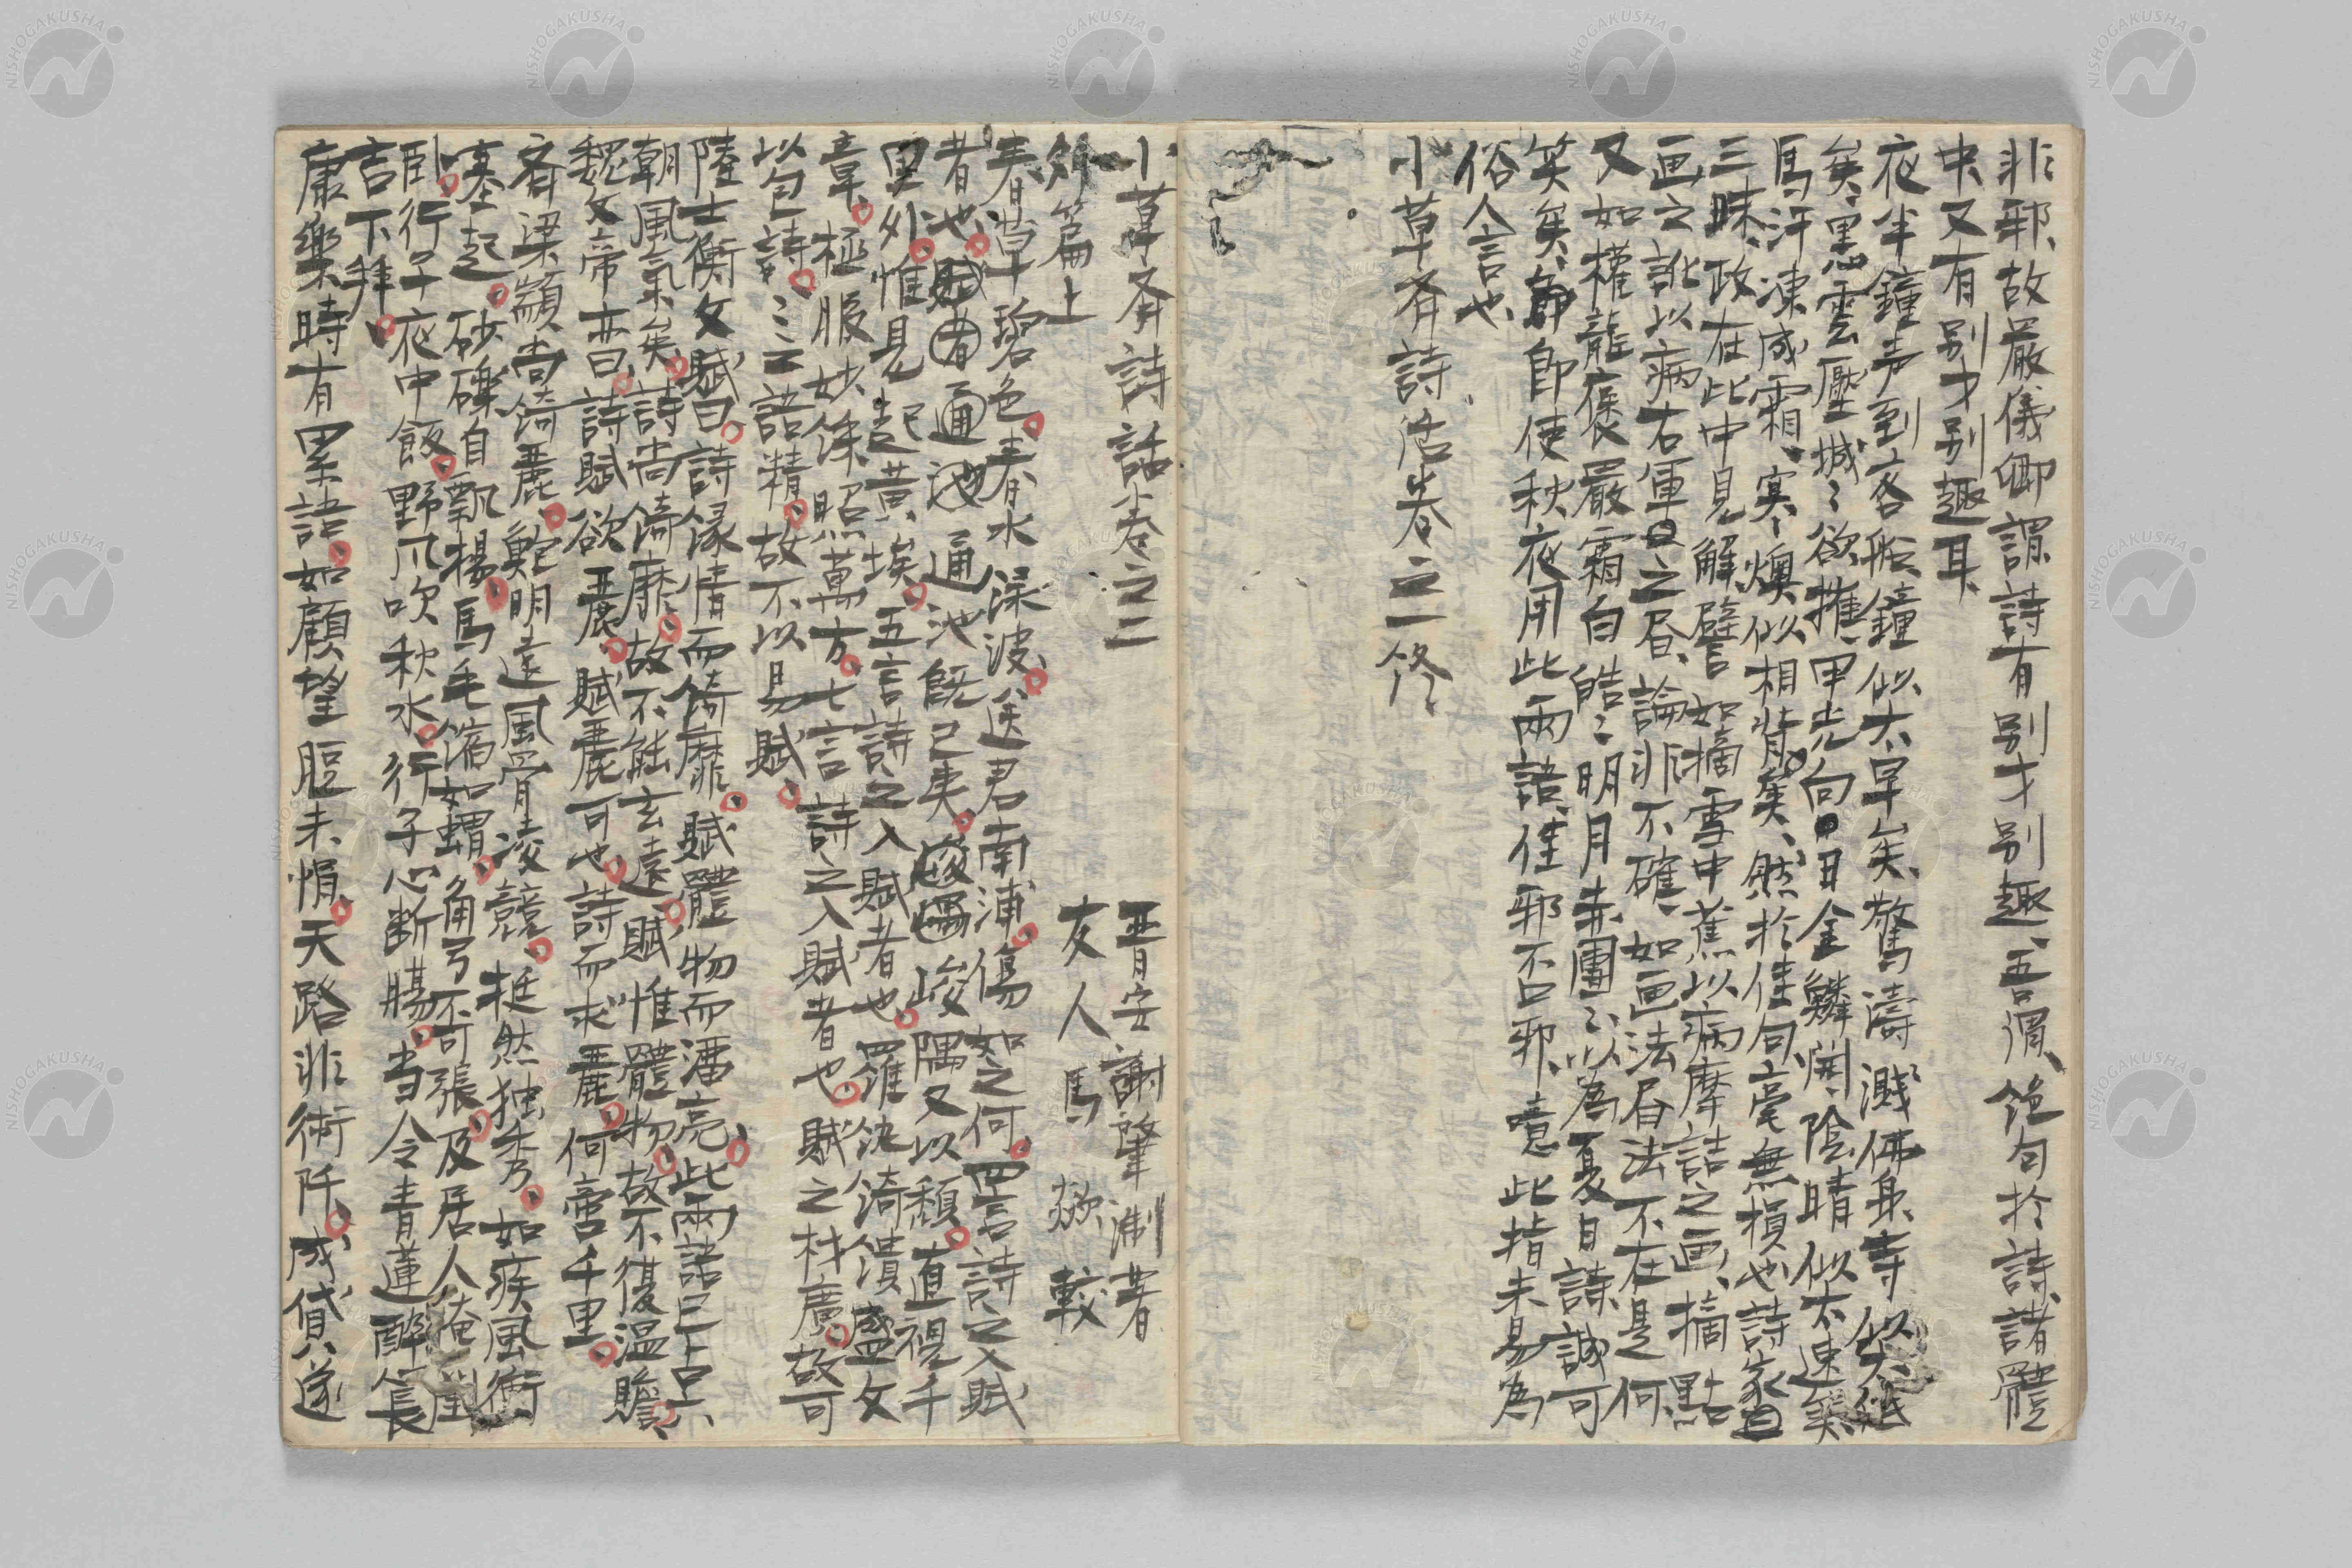 非邪、故嚴儀卿謂詩有別才別趣、吾謂、絶句於詩、諸體
中又有別才別趣耳、
夜半鐘声到客船、鐘似太早矣、驚濤濺佛身、寺似
矣、黒雲壓城々欲摧、甲光向日金鱗開、陰晴似太速矣、
馬汗凍成霜、寒燠似相背矣、然於佳句毫無損也、詩家
三昧、政在此中見解、譬如摘雪中蕉以病摩詰之画、摘點
画之訛以病右軍之昏、論非不確、如画法昏法不在是何、
又如權龍褒嚴霜白皓々明月赤團々以為夏日詩、誠可
笑矣、即使秋夜用此兩語、佳邪否邪、噫此指未易為
俗人言也、
小草斎詩話巻之一終
小草斎詩話巻之二
晋安 謝肇淛著
外篇上
友人 馬 歘 較
春草碧色、春水淥波、送君南浦、傷如之何、四言詩之入賦
者也、通池既已夷、峻隅又以頽、直視千
里外、惟見起黄埃、五言詩之入賦者也、羅紈綺繢盛文
章、極服妙綵照萬方、七言詩之入賦者也、賦之材廣、故可
以包詩、詩之語精、故不以易賦、
陸士衡文賦曰、詩縁情而綺靡、賦體物而瀏亮、此兩語已占六
朝風氣矣、詩尚綺靡、故不能玄遠、賦惟體物、故不復温贍、
魏文帝亦曰、詩賦欲麗、賦麗可也、詩而求麗、何啻千里、
斉梁顓尚綺麗、鮑明遠風骨凌競、挺然独秀、如疾風衝
塞起、砂礫自飄楊、馬毛縮如蝟、角弓不可張、及居人掩閨
臥、行子夜中飯、野風吹秋水、行子心断腸、当令青蓮酔
吉下拜、
康樂時有累語、如顧望脰未悁、天路非術阡、成貸遂